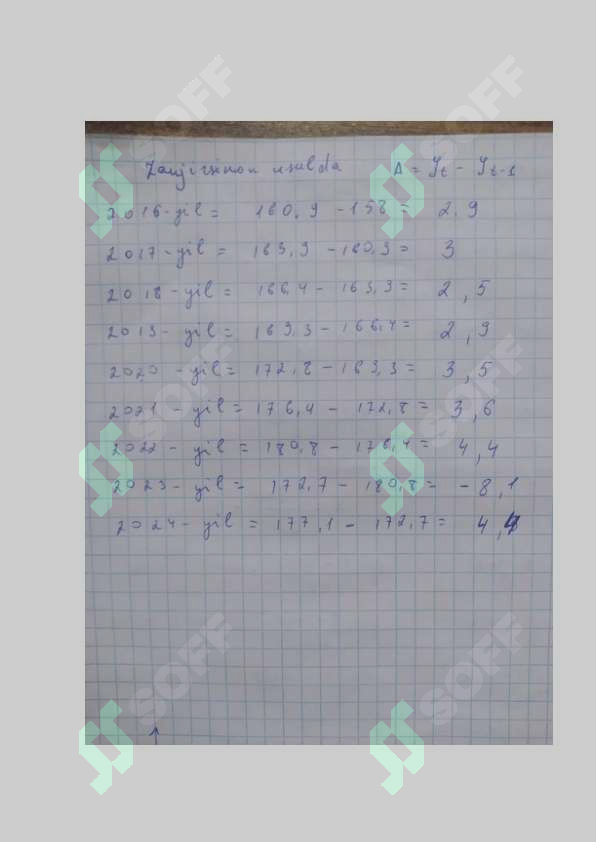 Zanjirsimon usulda Δ = Yt - Yt-1
2016-yil = 160,9 - 158 = 2,9
2017-yil = 163,9 - 160,9 = 3
2018-yil = 166,4 - 163,9 = 2,5
2019-yil = 169,3 - 166,4 = 2,9
2020-yil = 172,8 - 169,3 = 3,5
2021-yil = 176,4 - 172,8 = 3,6
2022-yil = 180,8 - 176,4 = 4,4
2023-yil = 172,7 - 180,8 = -8,1
2024-yil = 177,1 - 172,7 = 4,4
SOFF
SOFF
SOFF
SOFF
SOFF
SOFF